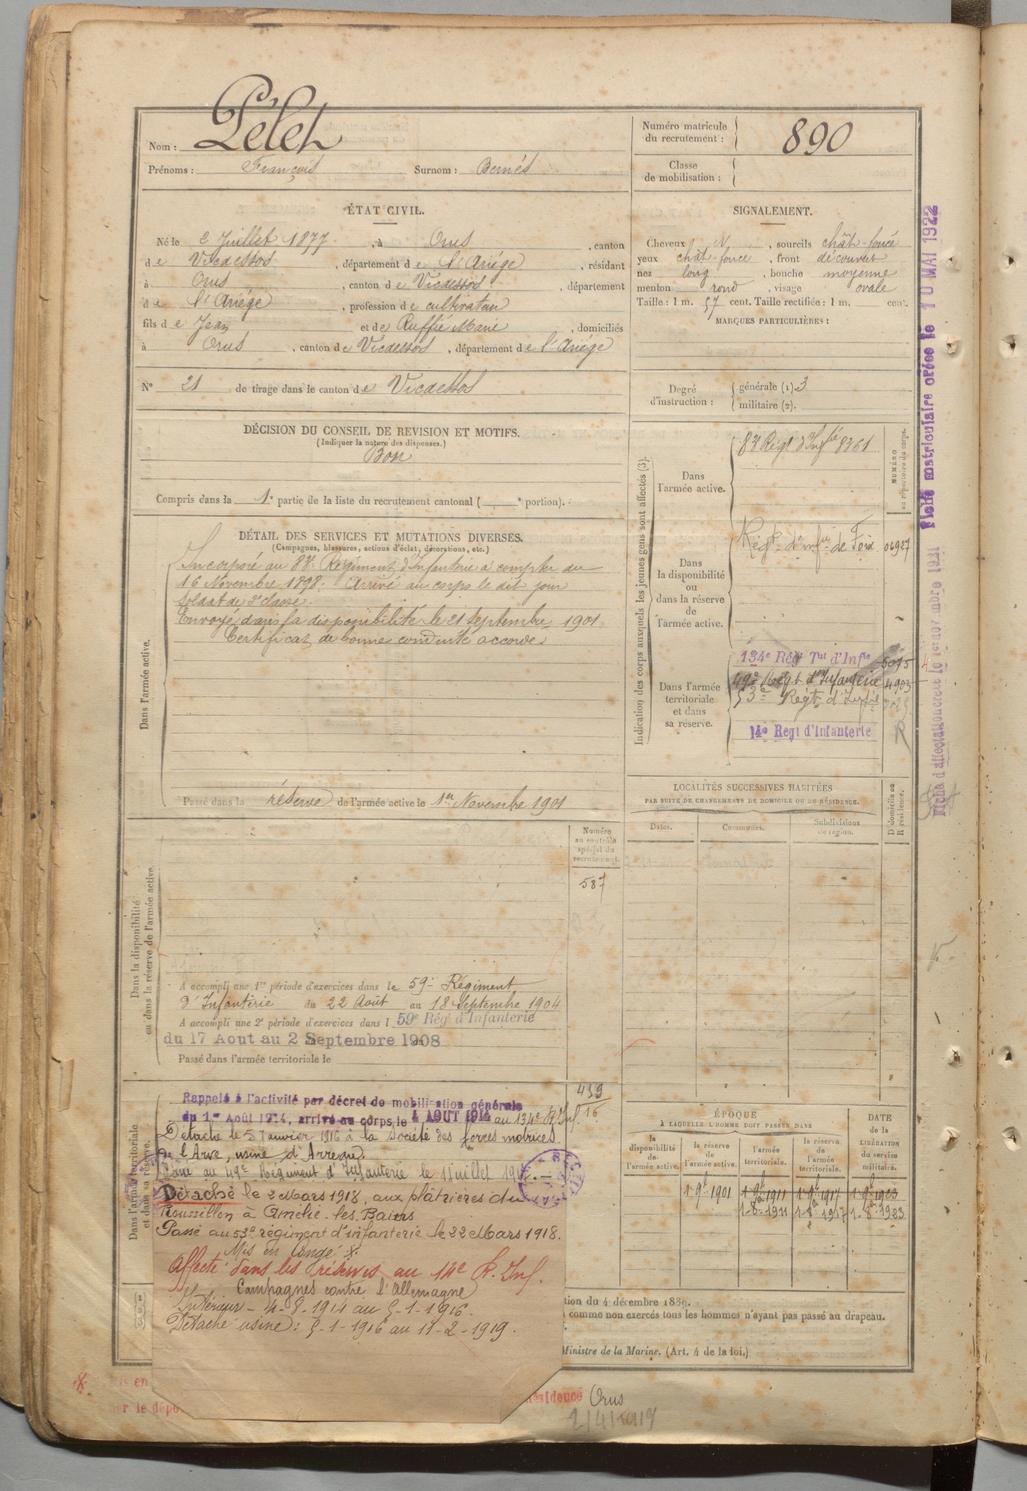 Nom : Pélet
Prénoms : François Surnom : Bernés
Numéro matricule du recrutement : 890
Classe de mobilisation :
ÉTAT CIVIL.
Né le 2 Juillet 1877, à Orus, canton
de Vicdessos, département de l'Ariège, résidant
à Orus, canton de Vicdessos, département
de l'Ariège, profession de cultivateur
fils de Jean et de Ruffié Marie, domiciliés
à Orus, canton de Vicdessos, département de l'Ariège
N° 21 de tirage dans le canton de Vicdessos
SIGNALEMENT.
Cheveux N, sourcils chât-foncé
yeux chât-foncé, front découvert
nez long, bouche moyenne
menton rond, visage ovale
Taille : 1 m. 57 cent. Taille rectifiée : 1 m. cent.
MARQUES PARTICULIÈRES :
Degré d'instruction : générale (1) 3
militaire (2).
DÉCISION DU CONSEIL DE REVISION ET MOTIFS.
(Indiquer la nature des dispenses.)
Bon
Compris dans la 1e partie de la liste du recrutement cantonal ( e portion).
DÉTAIL DES SERVICES ET MUTATIONS DIVERSES.
(Campagnes, blessures, actions d'éclat, décorations, etc.)
Dans l'armée active.
Incorporé au 83e Régiment d'Infanterie à compter du
16 Novembre 1898. Arrivé au corps le dit jour
soldat de 2e classe.
Envoyé dans la disponibilité le 21 septembre 1901.
Certificat de bonne conduite accordé
Passé dans la réserve de l'armée active le 1er Novembre 1901
Indication des corps auxquels les jeunes gens sont affectés (3).
NUMÉRO au répertoire du corps.
Dans l'armée active.
83 Régt d'Infie 8361
Dans la disponibilité ou dans la réserve de l'armée active.
Régt d'Infie de Foix 04927
Dans l'armée territoriale et dans sa réserve.
134e Régt Tal d'Infie
49e Régt d'Infanterie 4903
53e Régt d'Infie
14e Regt d'Infanterie R
LOCALITÉS SUCCESSIVES HABITÉES
PAR SUITE DE CHANGEMENTS DE DOMICILE OU DE RÉSIDENCE.
Dates. Communes. Subdivisions de région. D. domicile ou R. résidence.
Dans la disponibilité ou dans la réserve de l'armée active.
Numéro au contrôle spécial du recrutement.
587
A accompli une 1re période d'exercices dans le 59e Régiment
d'Infanterie du 22 Août au 18 Septembre 1904
A accompli une 2e période d'exercices dans l 59e Régt d'Infanterie
du 17 Aout au 2 Septembre 1908
Passé dans l'armée territoriale le
Dans l'armée territoriale et dans sa réserve.
439
16
Rappelé à l'activité par décret de mobilisation générale
du 1er Août 1914, arrivé au corps le 4 AOUT 1914 au 134e R.T. Inf.
Détaché le 5 Janvier 1916 à la société des forces motrices
de l'Arve, usine d'
Passé au 49e Régiment d'Infanterie le 1 Juillet
Détaché le 2 Mars 1918, aux plâtrières du
Roussillon à Amélie-les-Bains
Passé au 53e régiment d'infanterie le 22 Mars 1918.
Mis en congé
Affecté dans les réserves au 14e R. Inf.
Campagnes contre l'Allemagne
Intérieur - 4-8-1914 au 5-1-1916
Détaché usine : 5-1-1916 au 11-2-1919.
ÉPOQUE
À LAQUELLE L'HOMME DOIT PASSER DANS
la disponibilité de l'armée active.
la réserve de l'armée active.
l'armée territoriale.
la réserve de l'armée territoriale.
DATE de la LIBÉRATION du service militaire.
1-9bre 1901 1-9bre 1911 1-9bre 1917 1-9bre 1923
1-8-1911 1-8-1917 1-8-1923
tion du 4 décembre 1889.
comme non exercés tous les hommes n'ayant pas passé au drapeau.
Ministre de la Marine. (Art. 4 de la loi.)
résidence Orus
2/4/1919
Fiche matriculaire créée le 10 MAI 1922